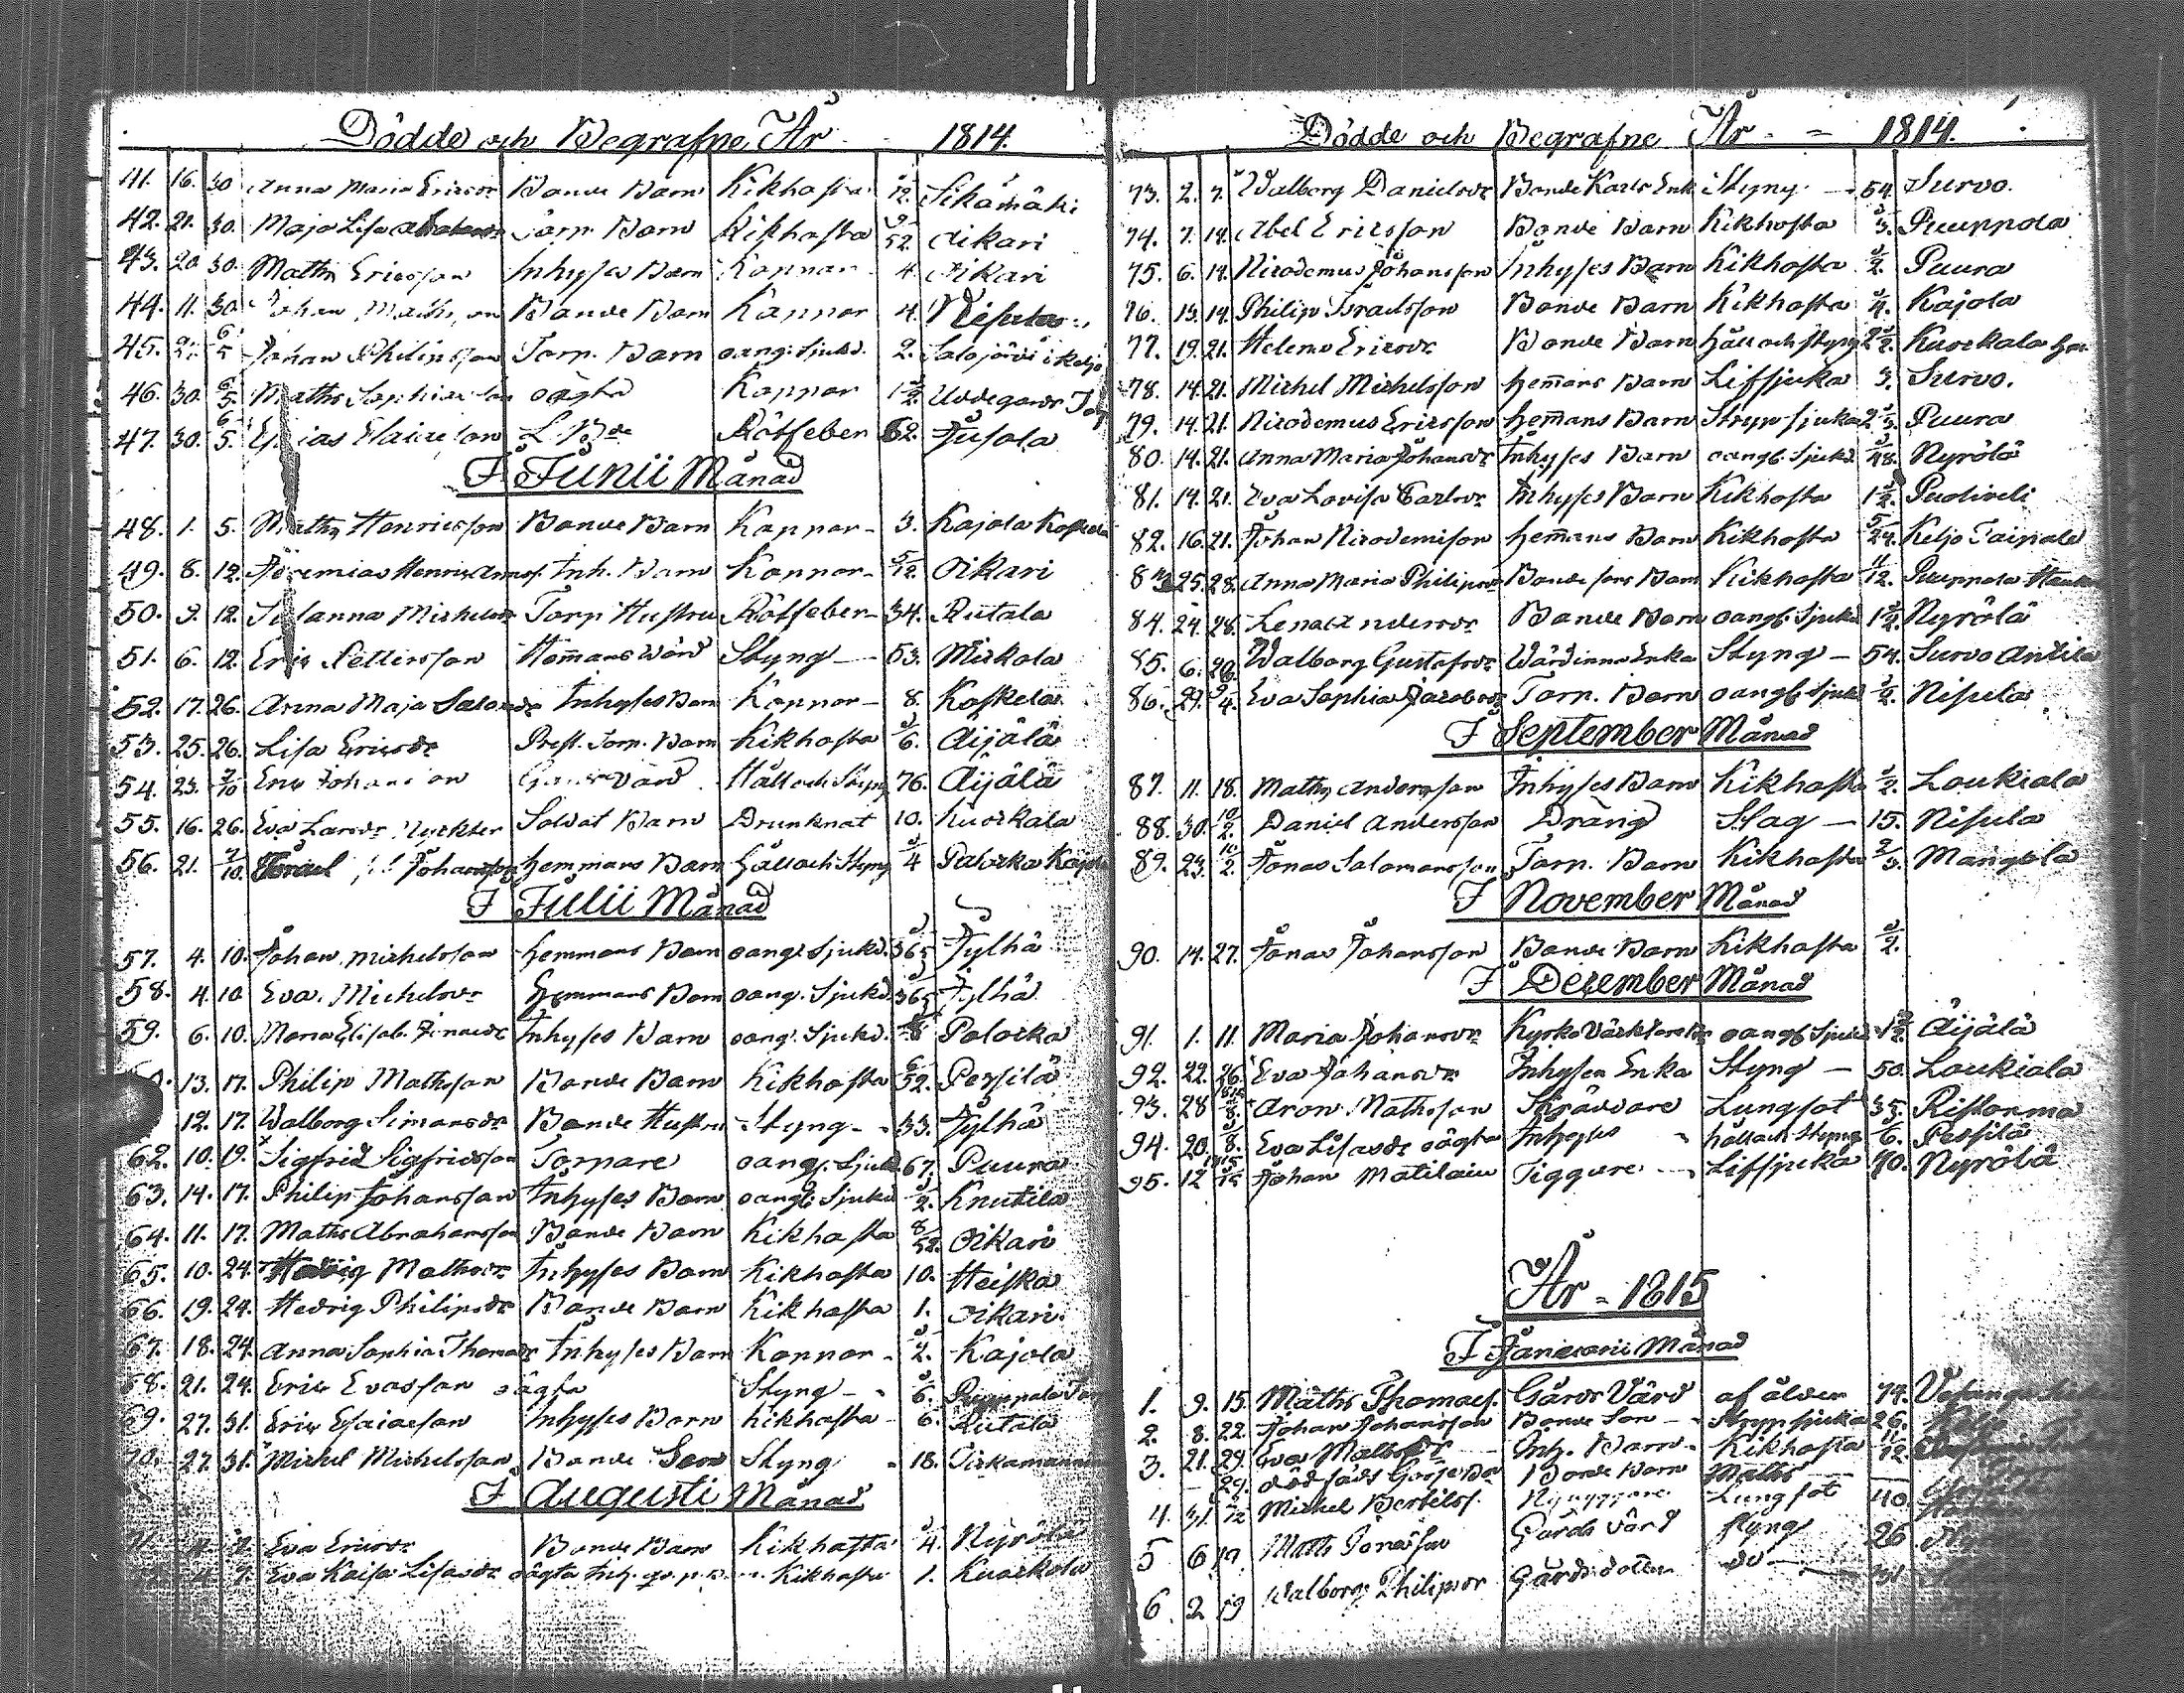 Dödde och Begrafne År 1814.
41. 16. 30 Anna Maria Ericsdr Bonde Barn Kikhosta 12. Sikämäki
42. 21. 30. Maja Lisa Torp. Barn Kikhosta 9/52. Oikari
43. 20 30. Maths Ericsson Inhyses Barn Koppor 4. Oikari
44. 11. 30 Johan Bonde Barn Koppor 4. Nisula
45. 6/5 Johan Philipsson Torp. Barn oang. Sjukd. 2. Salojärvi i Keljo
46. 30. 6/5 Maths oägta Koppor 1 1/2 Uddegårds
47. 30. 6/5. Esaias Rötfeber 62. Jusola
I Junii Månad
48. 1. 5. Maths Henricsson Bonde Barn Koppor - 3. Kajola Koskela
49. 8. 12. Jeremias Inh. Barn Koppor - 5/12. Oikari
50. 9. 12. Susanna Michelsdr Torp Hustru Rötfeber - 34. Rutala
51. 6. 12. Eric Pettersson Hem̄ans Wärd Styng - 53. Mickola
52. 17. 26. Anna Maja Inhyses Barn Koppor - 8. Koskela
53. 25. 26. Lisa Ericsdr Prest. Torp. Barn Kikhosta 1/6. Äijälä
54. 23. 7/10 Eric Johansson Wärd Håll och Styng 76. Äijälä
55. 16. 26. Eva Larsdr Soldat Barn Drunknat 10. Kuockala
56. 21. 7/10. Israel Johansson Hemmans Barn Håll och Styng 1/4 Palocka Kajola
I Julii Månad
57. 4. 10. Johan Michelsson Hemmans Barn oang. Sjukd. 1/365 Jylhä
58. 4. 10 Eva Michelsdr Hemmans Barn oang. Sjukd. 1/365 Jylhä
59. 6. 10. Maria Elisab. Jonasdr Inhyses Barn oang. Sjukd. 8 Palocka
13. 17. Philip Mathsson Bonde Barn Kikhosta 6/52. Pessilä
12. 17. Walborg Simonsdr Bonde Hustru Styng - 33. Jylhä
62. 10. 19. Sigfrid Sigfridsson Torpare oang. Sjukd 67. Puura
63. 14. 17. Philip Johansson Inhyses Barn oangl. Sjukd 1/2. Knutila
64. 11. 17. Maths Abrahamsson Bonde Barn Kikhosta 8/52. Oikari
65. 10. 24. Hedvig Mathsdr Inhyses Barn Kikhosta 10. Heiska
66. 19. 24. Hedvig Philipsdr Bonde Barn Kikhosta 1. Oikari.
67. 18. 24. Anna Sophia Thomasdr Inhyses Barn Koppor - 1/2. Kajola
68. 21. 24. Eric Evasson oägta Styng - 1/6. Puuppola
69. 27. 31. Eric Esaiasson Inhyses Barn Kikhosta 6. Rutala
70. 27. 31. Michel Michelsson Bonde Son Styng 18.
I Augusti Månad
Eva Ericsdr Bonde Barn Kikhosta 1/4. Nyrölä
Eva Kaisa Lisasdr oägta Kikhosta 1. Kuockala
Dödde och Begrafne År - = 1814.
73. 2. 7. Walborg Danielsdr Bonde Karls Enk Styng - 54. Survo.
74. 7. 14. Abel Ericsson Bonde Barn Kikhosta 1/3. Puuppola
75. 6. 14. Nicodemus Johansson Inhyses Barn Kikhosta 1/2. Puura
76. 13. 14. Philip Israelsson Bonde Barn Kikhosta 1/4. Kajola
77. 19. 21. Helena Ericsdr Bonde Barn Håll och Styng 2 1/2. Kuockala
78. 14. 21. Michel Michelsson Hem̄ans Barn Lifsjuka 3. Survo.
79. 14. 21. Nicodemus Ericsson Hem̄ans Barn Strypsjuka 2 1/3. Puura
80. 14. 21. Anna Maria Johansdr Inhyses Barn oangl. Sjukd 1/48. Nyrölä
81. 14. 21. Eva Lovisa Carlsdr Inhyses Barn Kikhosta 1 1/2. Puoliveli
82. 16. 21. Johan Nicodemison Hem̄ans Barn Kikhosta 5/24. Keljo Taipale
83 25. 28. Anna Maria Philipsdr Bonde sons Barn Kikhosta 11/12. Puuppola
84. 24. 28. Lena Andersdr Bonde Barn oangl. Sjukd 1 1/2. Nyrölä
85. 6. 20. Walborg Gustafsdr Wärdinna Enka Styng - 54. Survo Anttila
86. 29. 9/4. Eva Sophia Jacobsdr Torp. Barn oangl. Sjukd 1/4. Nisula
I September Månad
87. 11. 18. Maths Andersson Inhyses Barn Kikhosta 1/2. Loukiala
88. 30. 10/2. Daniel Andersson Dräng Slag - 15. Nisula
89. 23. 10/2. Jonas Salomonsson Torp. Barn Kikhosta 2/3. Mangola
I November Månad
90. 14. 27. Jonas Johansson Bonde Barn Kikhosta 1/2.
I December Månad
91. 1. 11. Maria Johansdr Kyrko oangl. Sjukd 1 1/2. Äijälä
92. 22. 26. Eva Johansdr Inhyses Enka Styng - 50. Loukiala
93. 28 1/8. Aron Mathsson Skräddare Lungsot 35. Ristonma
94. 20. 1/8. Eva Lisasdr oägta Inhyses håll och Styng 6. Pessilä
95. 12 1/15 Johan Matilain Tiggare - Lifsjuka 70. Nyrölä
År - 1815
I Januarii Månad
1. 9. 15. Maths Thomass. Gårds Värd af ålder 74.
2. 8. 22. Johan Johansson Bonde Son - Strypsjuka 26.
3. 21. 29. Eva Inh. Barn - Kikhosta 11/12.
29. dödfödt Gosse Ba Bonde Barn
4. 31. Michel Bertilss. Lungsot 40.
5 6 19 Maths Jonasson Gårds värd styng 26
6. 2 19 Walborg Philipsdr do